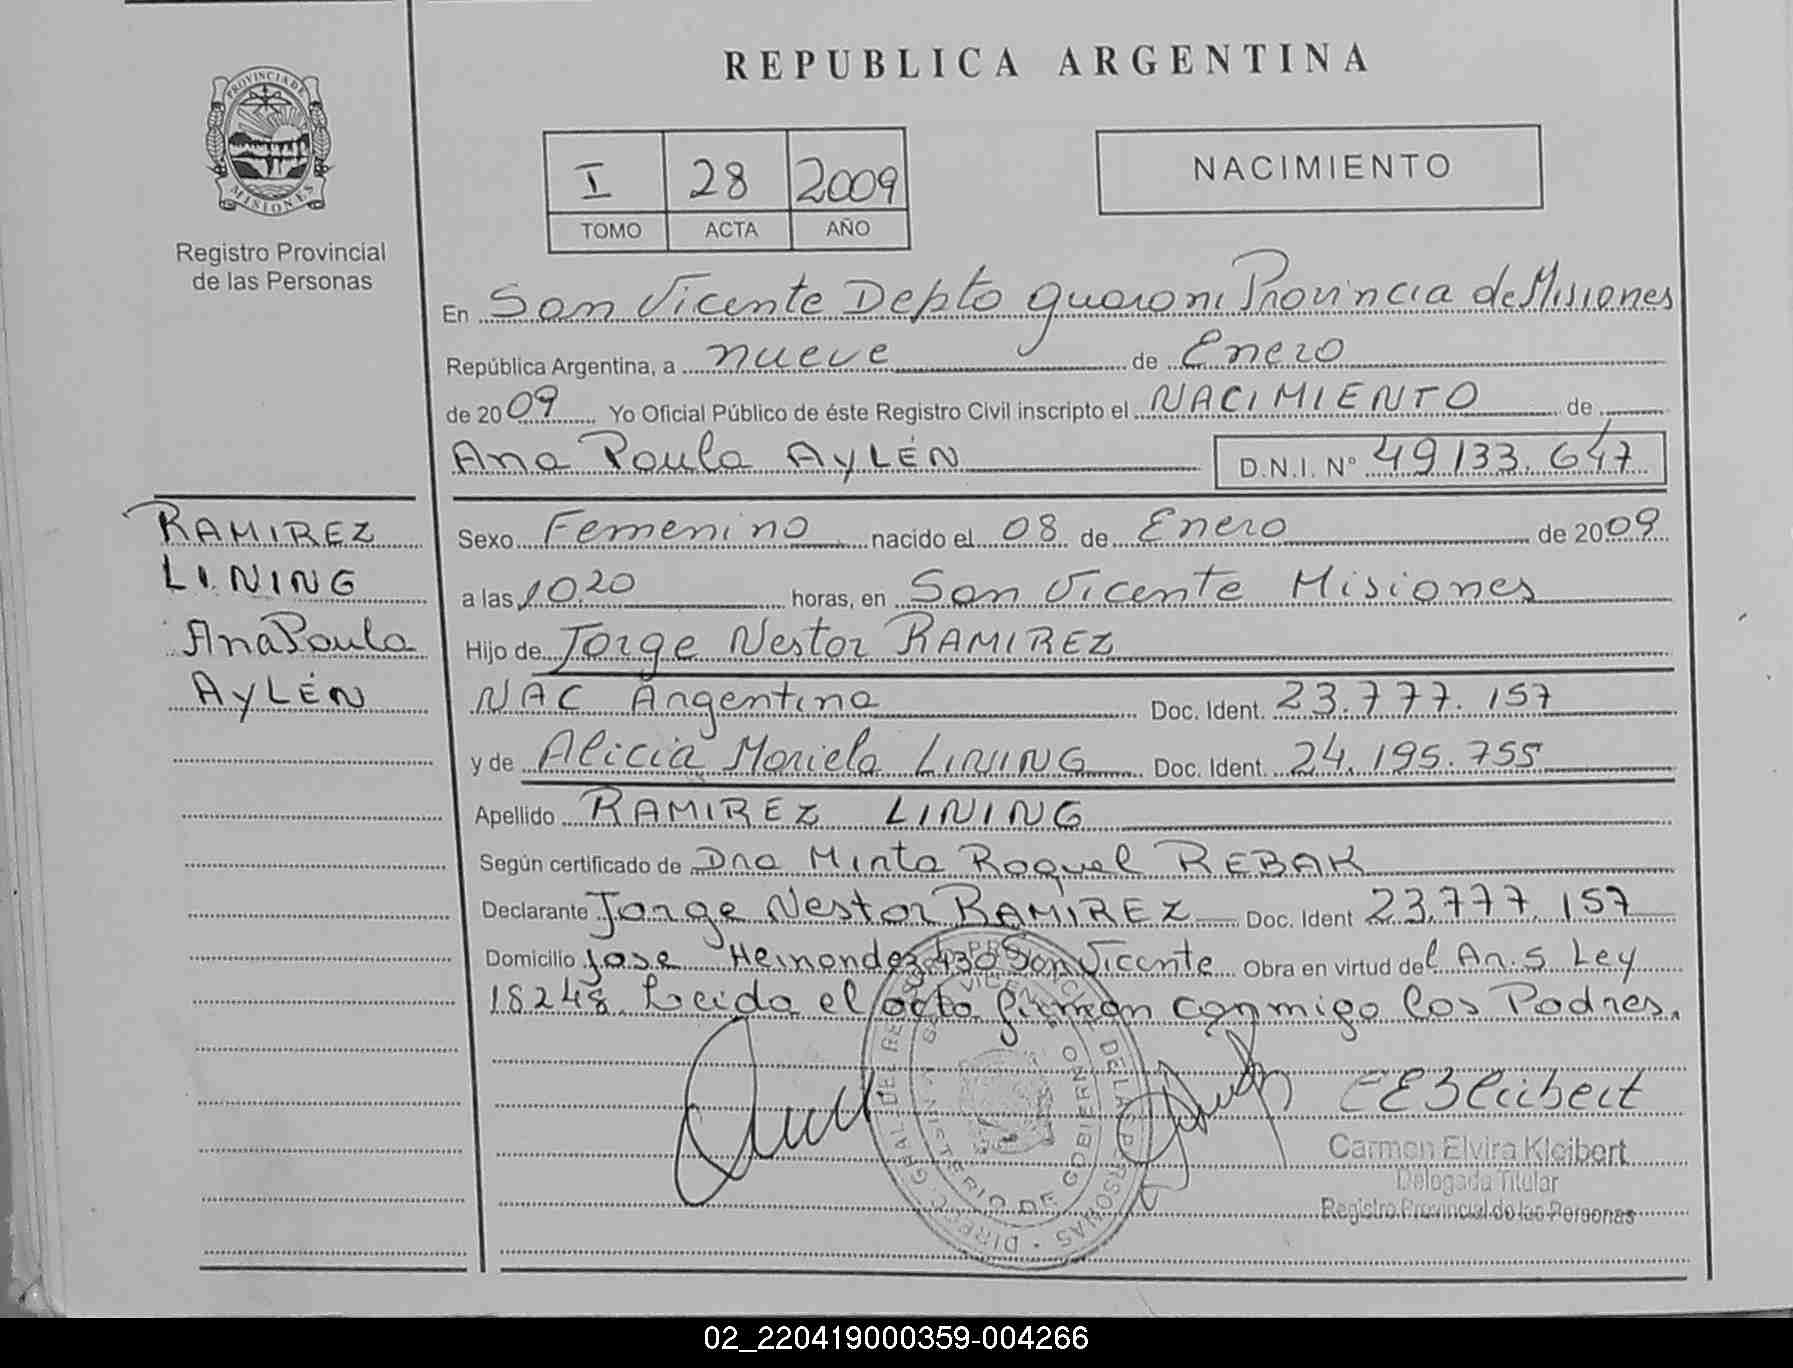 REPUBLICA ARGENTINA
PROVINCIA DE
MISIONES
Registro Provincial
de las Personas
I 28 2009
TOMO ACTA AÑO
NACIMIENTO
En San Vicente Depto guarani Provincia de Misiones
República Argentina, a nueve de Enero
de 2009 Yo Oficial Público de éste Registro Civil inscripto el NACIMIENTO de
Ana Paula AyLÉN D.N.I. N° 49133.647
RAMIREZ
LINING
Ana Paula
AyLÉN
Sexo Femenino nacido el 08 de Enero de 2009
a las 10.20 horas, en San Vicente Misiones
Hijo de Jorge Nestor RAMIREZ
NAC Argentina Doc. Ident. 23.777.157
y de Alicia Mariela LINING Doc. Ident. 24.195.755
Apellido RAMIREZ LINING
Según certificado de Dra Mirta Raquel REBAK
Declarante Jorge Nestor RAMIREZ Doc. Ident 23.777.157
Domicilio Jose Hernandez 430 San Vicente Obra en virtud del Ar. 5 Ley
18248. Leida el acto firman conmigo los Padres.
MINISTERIO DE GOBIERNO
Carmen Elvira Kleibert
Delegada Titular
Registro Provincial de las Personas
02_220419000359-004266